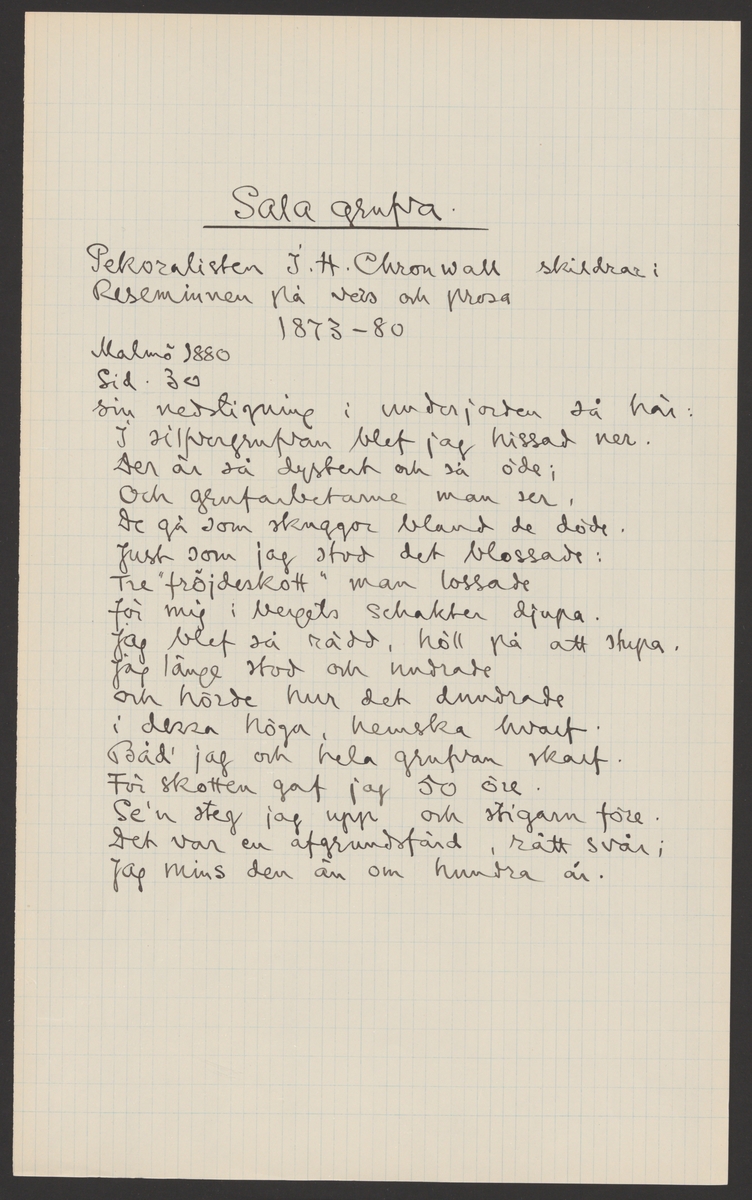 Sala grufva.
Pekoralisten J. H. Chronwall skildrar i
Reseminnen på vers och prosa
1873-80
Malmö 1880
Sid. 30
sin nedstigning i underjorden så här:
I silfvergrufvan blef jag hissad ner.
Der är så dystert och så öde;
Och grufarbetarne man ser,
De gå som skuggor bland de döde.
Just som jag stod det blossade:
Tre "fröjdeskott" man lossade
för mig i bergets schakter djupa.
Jag blef så rädd, höll på att stupa.
Jag länge stod och undrade
och hörde hur det dundrade
i dessa höga, hemska hvarf.
Båd' jag och hela grufvan skarf.
För skotten gaf jag 50 öre.
Se'n steg jag upp och stigarn före.
Det var en afgrundsfärd, rätt svår;
Jag mins den än om hundra år.